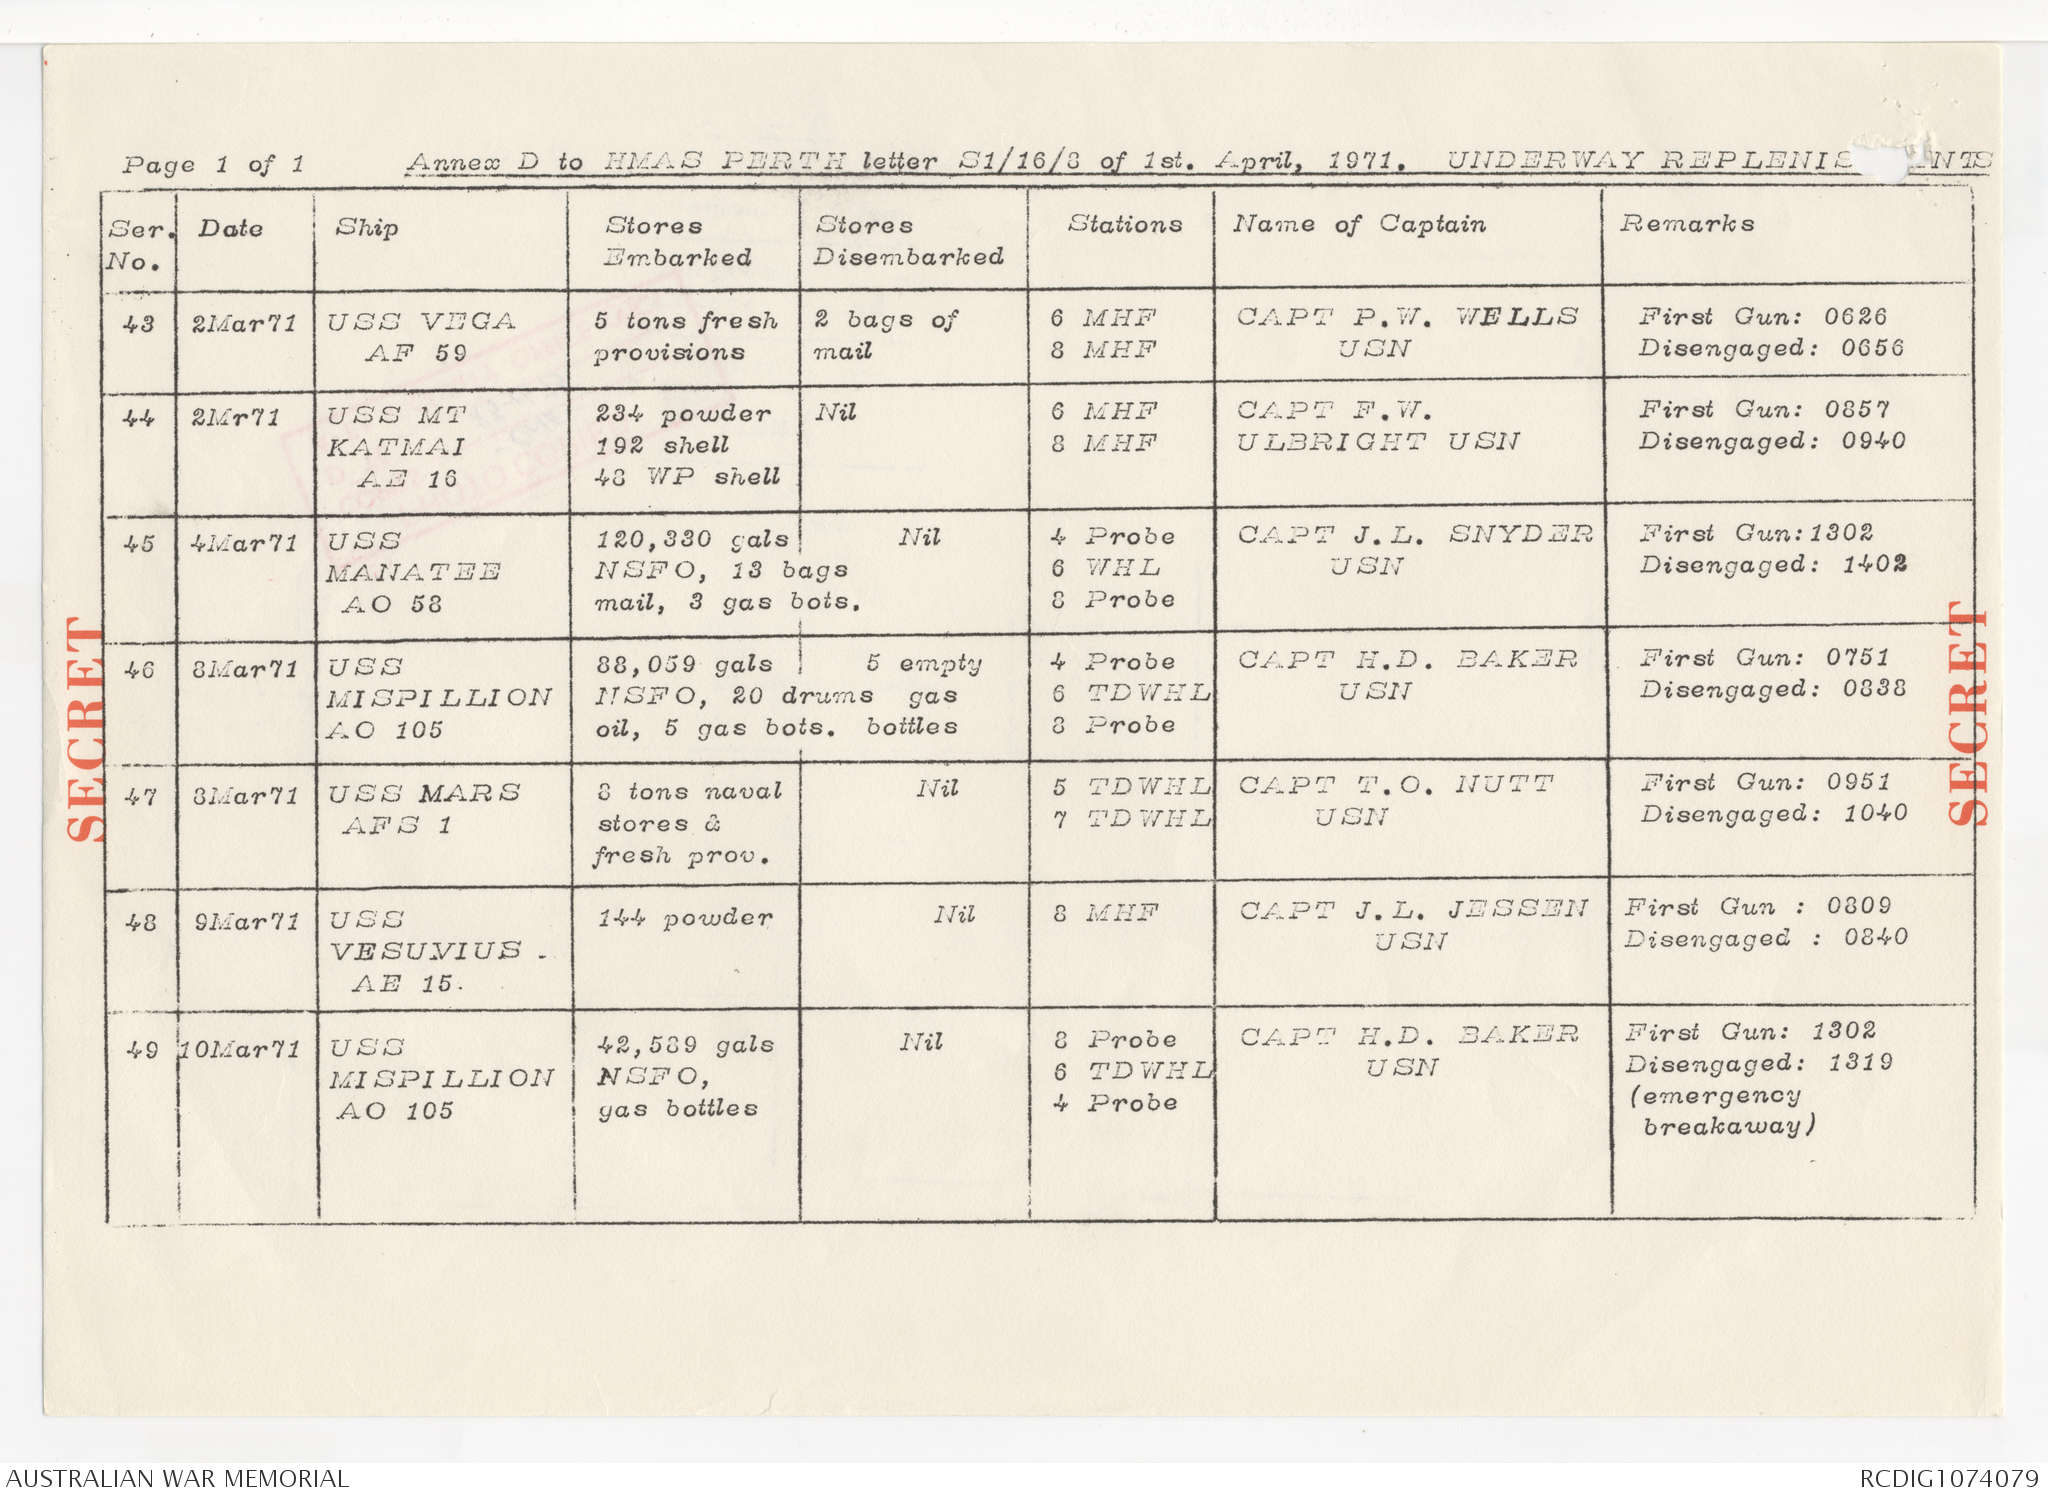 Page 1 of 1 Annex D to HMAS PERTH letter S1/16/8 of 1st. April, 1971. UNDERWAY
Ser. No. Date Ship Stores Embarked Stores Disembarked Stations Name of Captain Remarks
43 2Mar71 USS VEGA 5 tons fresh 2 bags of 6 MHF CAPT P.W. WELLS First Gun: 0626
AF 59 provisions mail 8 MHF USN Disengaged: 0656
44 2Mr71 USS MT 234 powder Nil 6 MHF CAPT F.W. First Gun: 0857
KATMAI 192 shell 8 MHF ULBRIGHT USN Disengaged: 0940
AE 16 48 WP shell
45 4Mar71 USS 120,330 gals Nil 4 Probe CAPT J.L. SNYDER First Gun:1302
MANATEE NSFO, 13 bags 6 WHL USN Disengaged: 1402
AO 58 mail, 3 gas bots. 8 Probe
46 8Mar71 USS 88,059 gals 5 empty 4 Probe CAPT H.D. BAKER First Gun: 0751
MISPILLION NSFO, 20 drums gas 6 TDWHL USN Disengaged: 0838
AO 105 oil, 5 gas bots. bottles 8 Probe
47 8Mar71 USS MARS 8 tons naval Nil 5 TDWHL CAPT T.O. NUTT First Gun: 0951
AFS 1 stores & 7 TDWHL USN Disengaged: 1040
fresh prov.
48 9Mar71 USS 144 powder Nil 8 MHF CAPT J.L. JESSEN First Gun : 0809
VESUVIUS . USN Disengaged : 0840
AE 15.
49 10Mar71 USS 42,589 gals Nil 8 Probe CAPT H.D. BAKER First Gun: 1302
MISPILLION NSFO, 6 TDWHL USN Disengaged: 1319
AO 105 gas bottles 4 Probe (emergency
breakaway)
SECRET
SECRET
AUSTRALIAN WAR MEMORIAL
RCDIG1074079